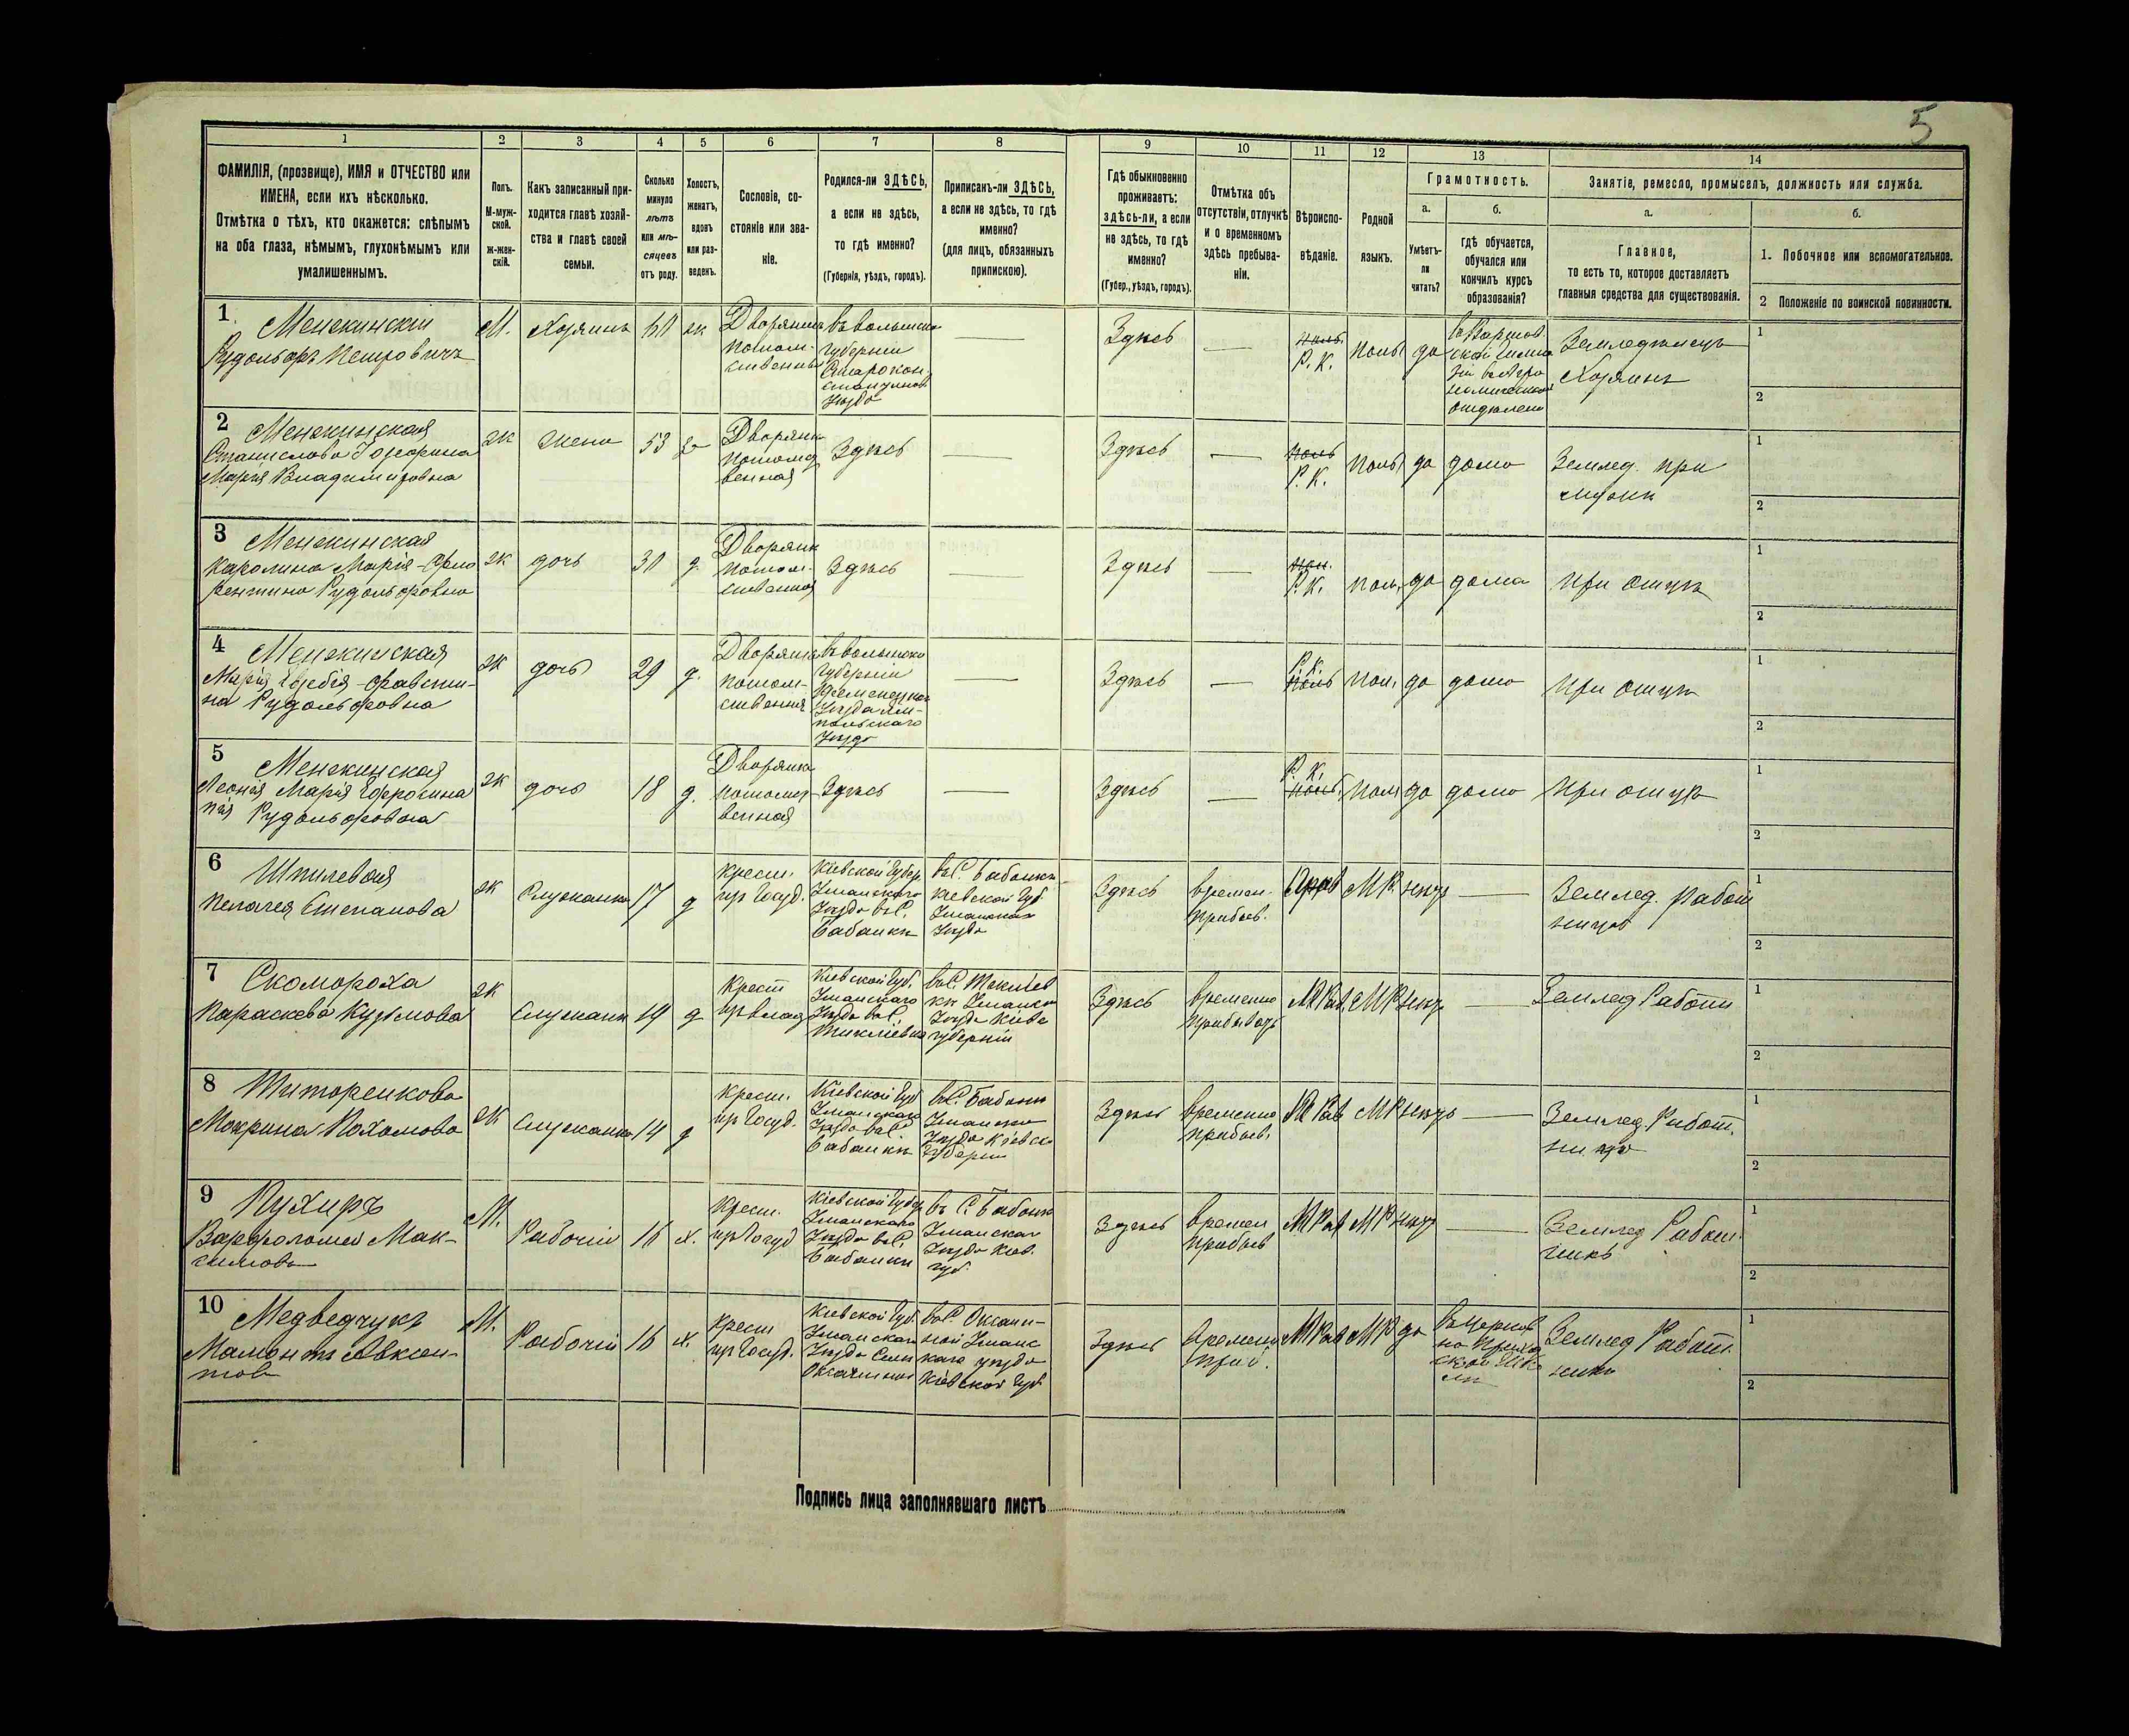 5
1 2 3 4 5 6 7 8 9 10 11 12 13 14
ФАМИЛІЯ, (прозвище), ИМЯ и ОТЧЕСТВО или
ИМЕНА, если ихъ нѣсколько.
Отмѣтка о тѣхъ, кто окажется: слѣпымъ
на оба глаза, нѣмымъ, глухонѣмымъ или
умалишеннымъ.
Полъ.
М-муж-
ской.
ж-жен-
скій.
Какъ записанный при-
ходится главѣ хозяй-
ства и главѣ своей
семьи.
Сколько
минуло
лѣтъ
или мѣ-
сяцевъ
отъ роду.
Холостъ,
женатъ,
вдовъ
или раз-
веденъ.
Сословіе, со-
стояніе или зва-
ніе.
Родился-ли ЗДѢСЬ,
а если не здѣсь,
то гдѣ именно?
(Губернія, уѣздъ, городъ).
Приписанъ-ли ЗДѢСЬ,
а если не здѣсь, то гдѣ
именно?
(для лицъ, обязанныхъ
припискою).
Гдѣ обыкновенно
проживаетъ:
здѣсь-ли, а если
не здѣсь, то гдѣ
именно?
(Губер., уѣздъ, городъ).
Отмѣтка объ
отсутствіи, отлучкѣ
и о временномъ
здѣсь пребыва-
ніи.
Вѣроиспо-
вѣданіе.
Родной
языкъ.
Грамотность.
а.
Умѣетъ-
ли
читать?
б.
Гдѣ обучается,
обучался или
кончилъ курсъ
образованія?
Занятіе, ремесло, промыселъ, должность или служба.
а.
Главное,
то есть то, которое доставляетъ
главныя средства для существованія.
б.
1. Побочное или вспомогательное.
2 Положеніе по воинской повинности.
1
Менжинскій
Рудольфъ Петровичъ
М.
Хозяинъ
60
ж
Дворянинъ
потом-
ственный
Въ волынской
губерніи
Старокон-
стантинов
Уѣзда
Здѣсь
Р. К.
поль
да
въ Варшав
ской гимна
Земледѣлецъ
Хозяинъ
1
2
2
Менжинская
Станислава Іозефина
Марія Владиміровна
ж
жена
53
з
Дворянка
потомст
венная
Здѣсь
Здѣсь
Р. К.
поль
да
дома
Землед. при
мужѣ
1
2
3
Менжинская
Каролина Марія-Фло
рентина Рудольфовна
ж
дочь
30
д.
Дворянк
потом-
ственная
Здѣсь
Здѣсь
Р. К.
пол.
да
дома
при отцѣ
1
2
4
Менжинская
Марія Евзебія-Фавсти-
на Рудольфовна
ж
дочь
29
д.
Дворянка
потом-
ственная
Въ волынско
губерніи
Кременецкаго
Уѣзда Ям-
польскаго
Уѣзда
Здѣсь
Р. К.
пол.
да
дома
при отцѣ
1
2
5
Менжинская
Леонія Марія Ефросина
Рудольфовна
ж
дочь
18
д.
Дворянка
потомст
венная
Здѣсь
Здѣсь
Р. К.
пол
да
дома
при отцѣ
1
2
6
Шпилевая
Пелагея Степанова
ж
Служанка
17
д
крест.
пр Госуд.
Кіевской Губер.
Уманскаго
Уѣзда въ С.
Бабанкѣ
въ С. Бабанкѣ
Кіевской Губ
Уманскаго
Уѣзда
Здѣсь
времен.
прибыв.
Прав
МР
нѣтъ
Землед. Работ
ница
1
2
7
Скомороха
Параскева Кузьмова
ж
Служанк
19
д
Крест
пр влад
Кіевской Губ.
Уманскаго
Уѣзда въ С.
Текліевка
въ С. Текліев
кѣ Уманск
Уѣзда Кіевс
губерніи
Здѣсь
временно
МР
нѣтъ
Землед Работн
1
2
8
Титоренкова
Мокрина Пахомова
ж
Служанка
14
д
Крест.
пр Госуд.
Кіевской Губ
Уманскаго
Уѣзда въ С.
Бабанкѣ
въ С. Бабанк
Уманско
Уѣзда Кіевско
Губерніи
Здѣсь
временно
прибыв.
МР
нѣтъ
Землед. Работ.
ница
1
2
9
Пухиръ
Варфоломей Мак-
симовъ
М.
Рабочій
16
х.
Крест.
пр Госуд
Кіевской Губер
Уманскаго
Уѣзда въ С.
Бабанки
въ С Бабанк
Уманскаг
Уѣзда Кіев.
губ.
Здѣсь
времен
прибыв
МР
нѣтъ
Землед Работ.
никъ
1
2
10
Медведчукъ
Мамонтъ Авксен-
товъ
М.
Рабочій
16
х.
крест
пр Госуд.
Кіевской Губ.
Уманскаго
Уѣзда Села
Оксанина
въ С. Оксани-
ной Уманс
каго уѣзда
Кіевской Губ
Здѣсь
Времено
приб.
МР
да
Въ церков
но Прихо
ской Шко
лѣ
Землед Работ.
никъ
1
2
Подпись лица заполнявшаго листъ